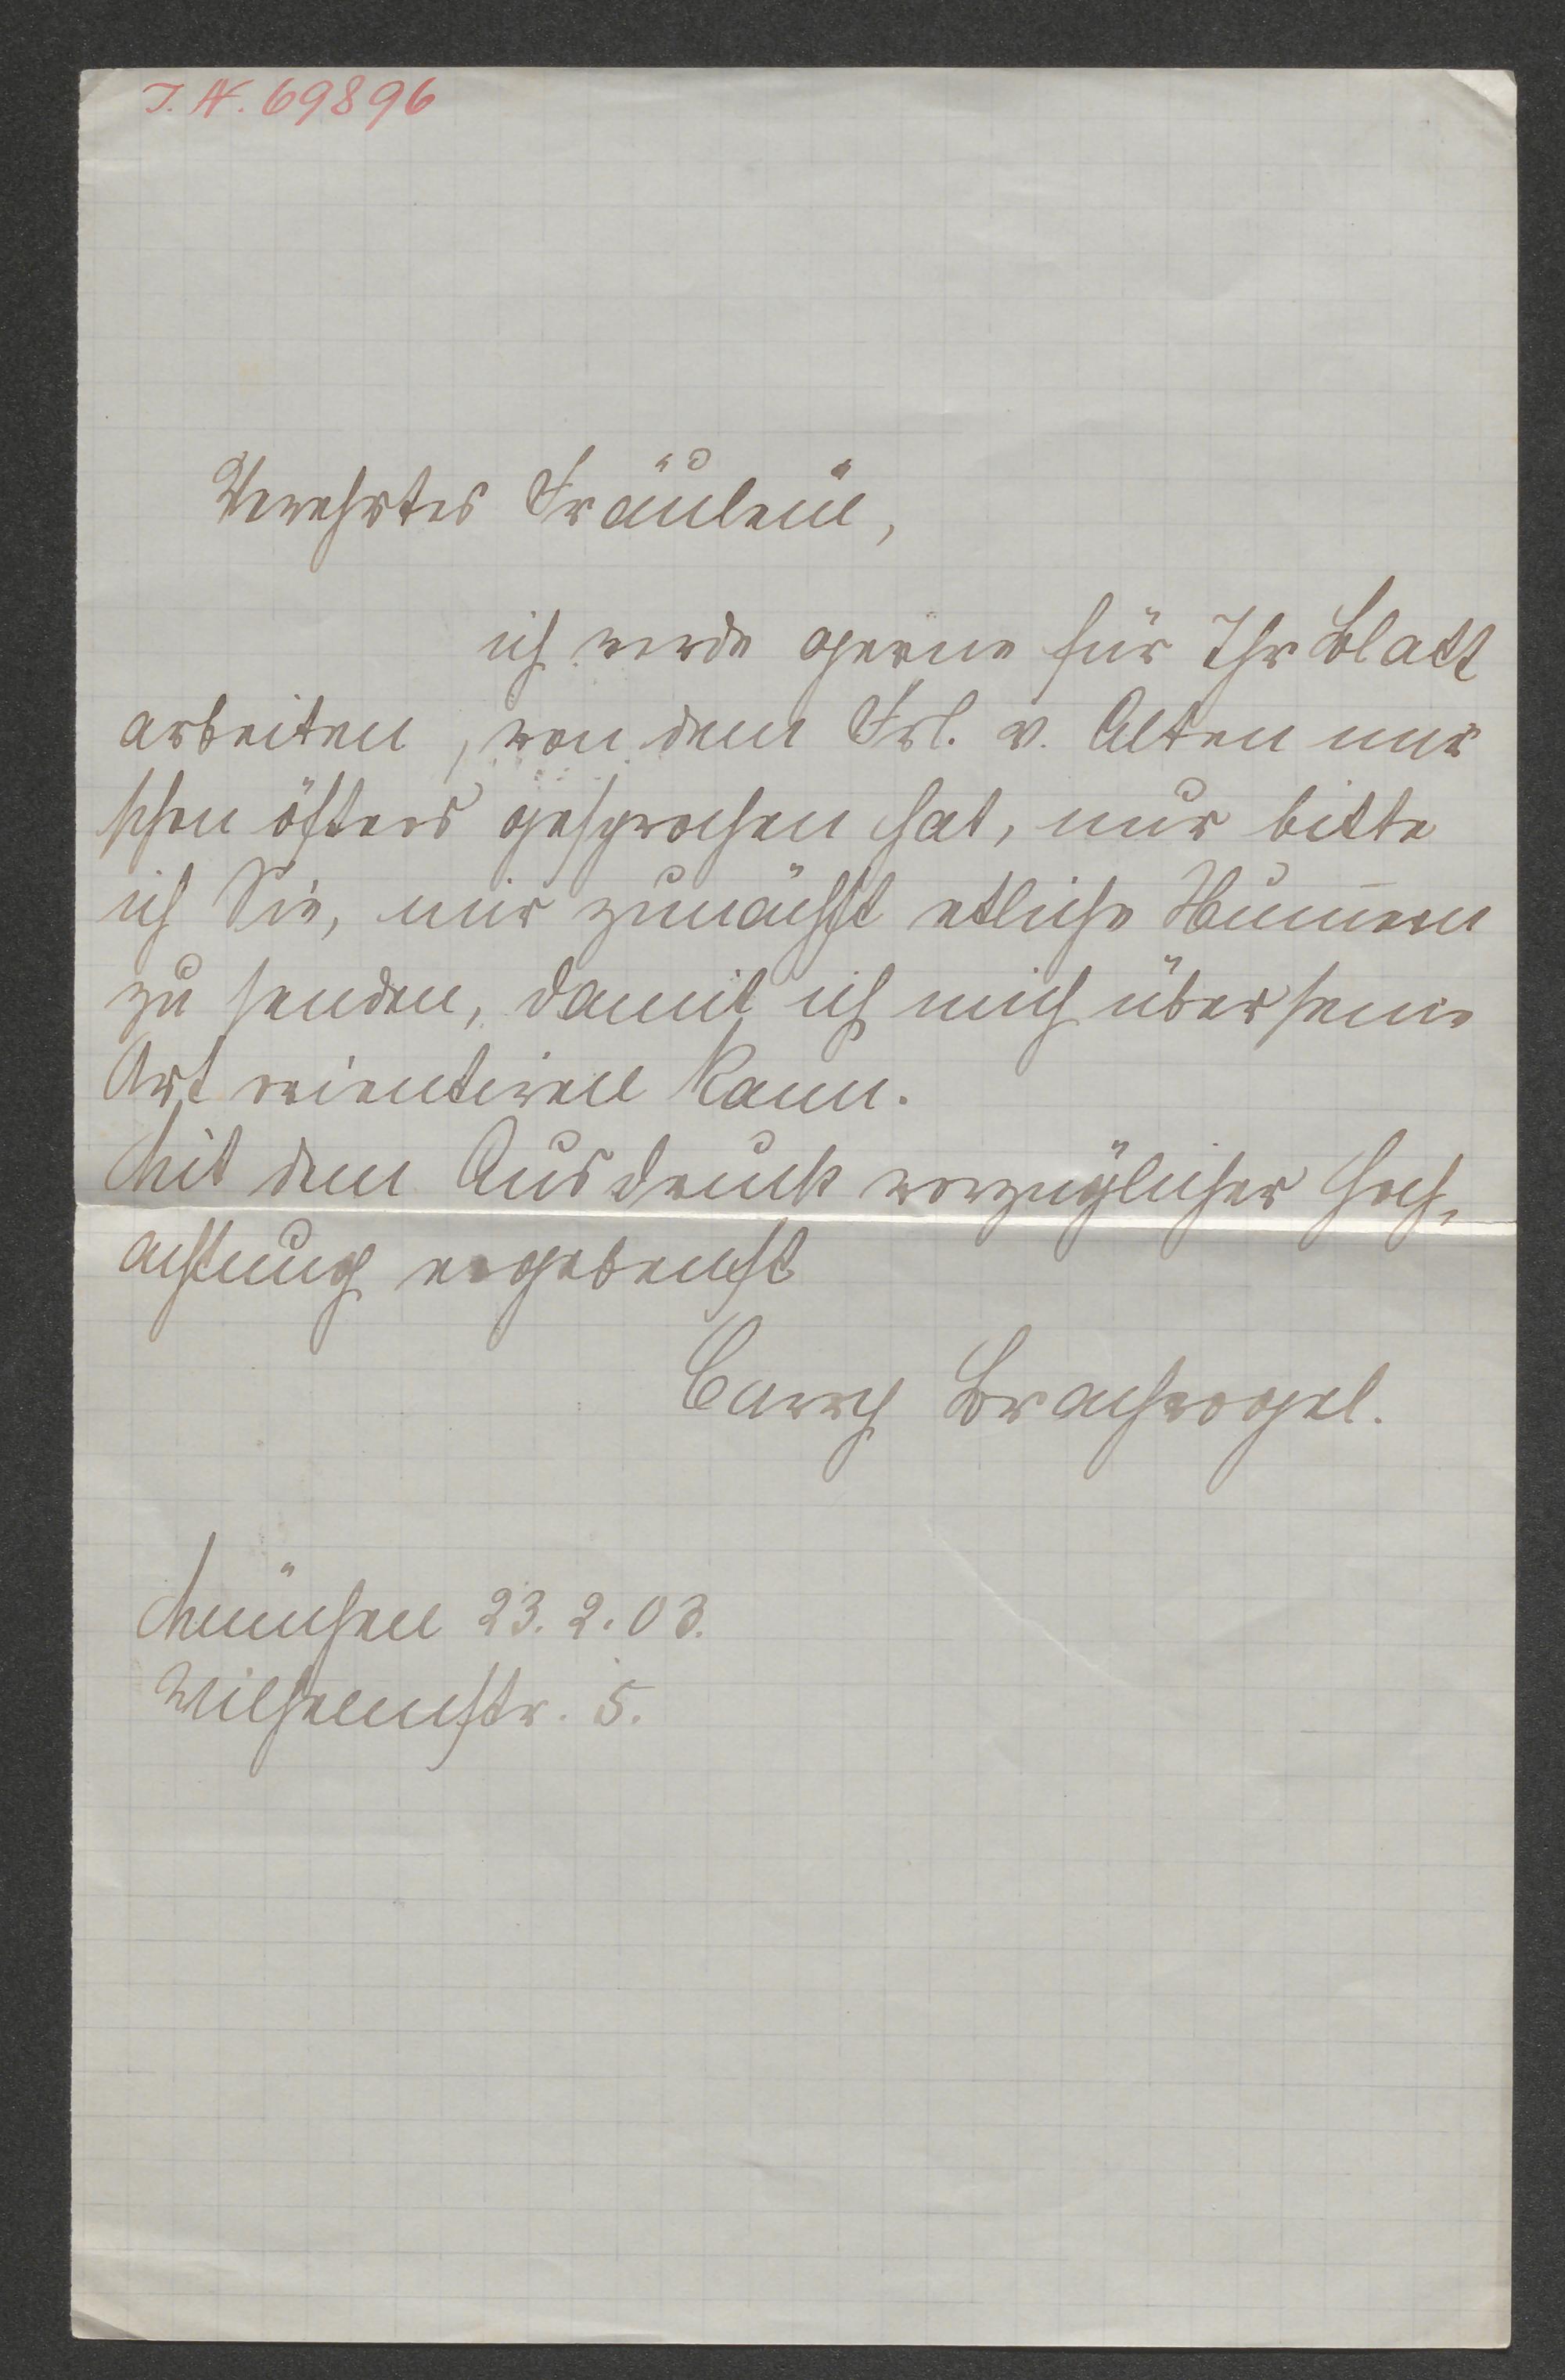 I. N. 69896
Verehrtes Fräulein,
ich werde gerne für Ihr Blatt
arbeiten, von dem Frl. v. Alten mir
schon öfters gesprochen hat, nur bitte
ich Sie, mir zunächst etliche Num̅ern
zu senden, damit ich mich über seine
Art orientiren kann.
Mit dem Ausdruck vorzüglicher Hoch-
achtung ergebenst
Carry Brachvogel.
München 23. 2. 03.
Wilhelmstr. 5.